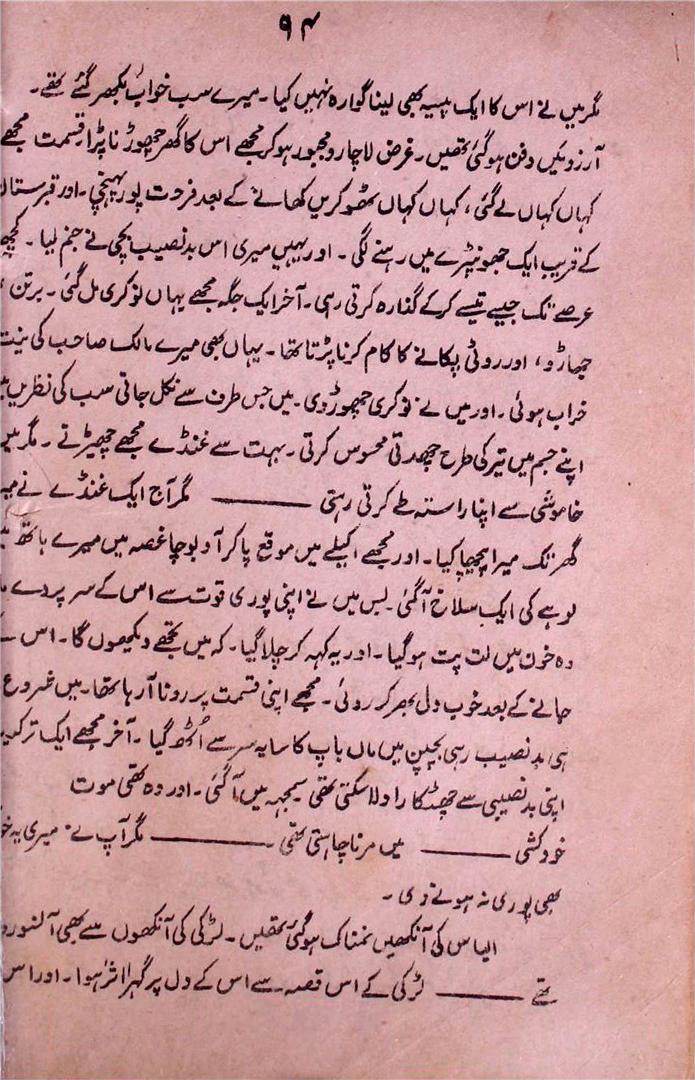 ۹۴
مگر میں نے اس کا ایک پیسہ بھی لینا گوارہ نہیں کیا۔ میرے سب خواب بکھر گئے تھے۔
آرزوئیں دفن ہو گئی تھیں۔ غرض لاچار و مجبور ہو کر مجھے اس کا گھر چھوڑنا پڑا۔ قسمت مجھے
کہاں کہاں لے گئی، کہاں کہاں ٹھوکریں کھانے کے بعد فرحت پور پہنچی۔ اور قبرستان
کے قریب ایک جھونپڑے میں رہنے لگی۔ اور یہیں میری اس بدنصیب بچی نے جنم لیا۔ کچھ
عرصے تک جیسے تیسے کر کے گذارہ کرتی رہی۔ آخر ایک جگہ مجھے یہاں نوکری مل گئی۔ برتن،
جھاڑو، اور روٹی پکانے کا کام کرنا پڑتا تھا۔ یہاں بھی میرے مالک صاحب کی نیت
خراب ہوئی۔ اور میں نے نوکری چھوڑ دی۔ میں جس طرف سے نکل جاتی سب کی نظریں
اپنے جسم میں تیر کی طرح چھدتی محسوس کرتی۔ بہت سے غنڈے مجھے چھیڑتے۔ مگر میں
خاموشی سے اپنا راستہ طے کرتی رہتی ——— مگر آج ایک غنڈے نے
گھر تک میرا پیچھا کیا۔ اور مجھے اکیلے میں موقع پا کر آ دبوچا غصہ میں میرے ہاتھ
لوہے کی ایک سلاخ آ گئی۔ بس میں نے اپنی پوری قوت سے اس کے سر پر دے
وہ خون میں لت پت ہو گیا۔ اور یہ کہہ کر چلا گیا۔ کہ میں تجھے دیکھوں گا۔ اس
جانے کے بعد خوب دل بھر کر روئی۔ مجھے اپنی قسمت پر رونا آ رہا تھا۔ میں شروع
ہی بدنصیب رہی بچپن میں ماں باپ کا سایہ سر سے اُٹھ گیا۔ آخر مجھے ایک ترکیب
اپنی بدنصیبی سے چھٹکارا دلا سکتی تھی سمجہہ میں آ گئی۔ اور وہ تھی موت
خودکشی ——— میں مرنا چاہتی تھی ——— مگر آپ نے میری یہ
بھی پوری نہ ہونے دی۔
الیاس کی آنکھیں نمناک ہو گئی تھیں۔ لڑکی کی آنکھوں سے بھی آنسو
تھے ——— لڑکی کے اس قصہ سے اس کے دل پر گہرا اثر ہوا۔ اور اس